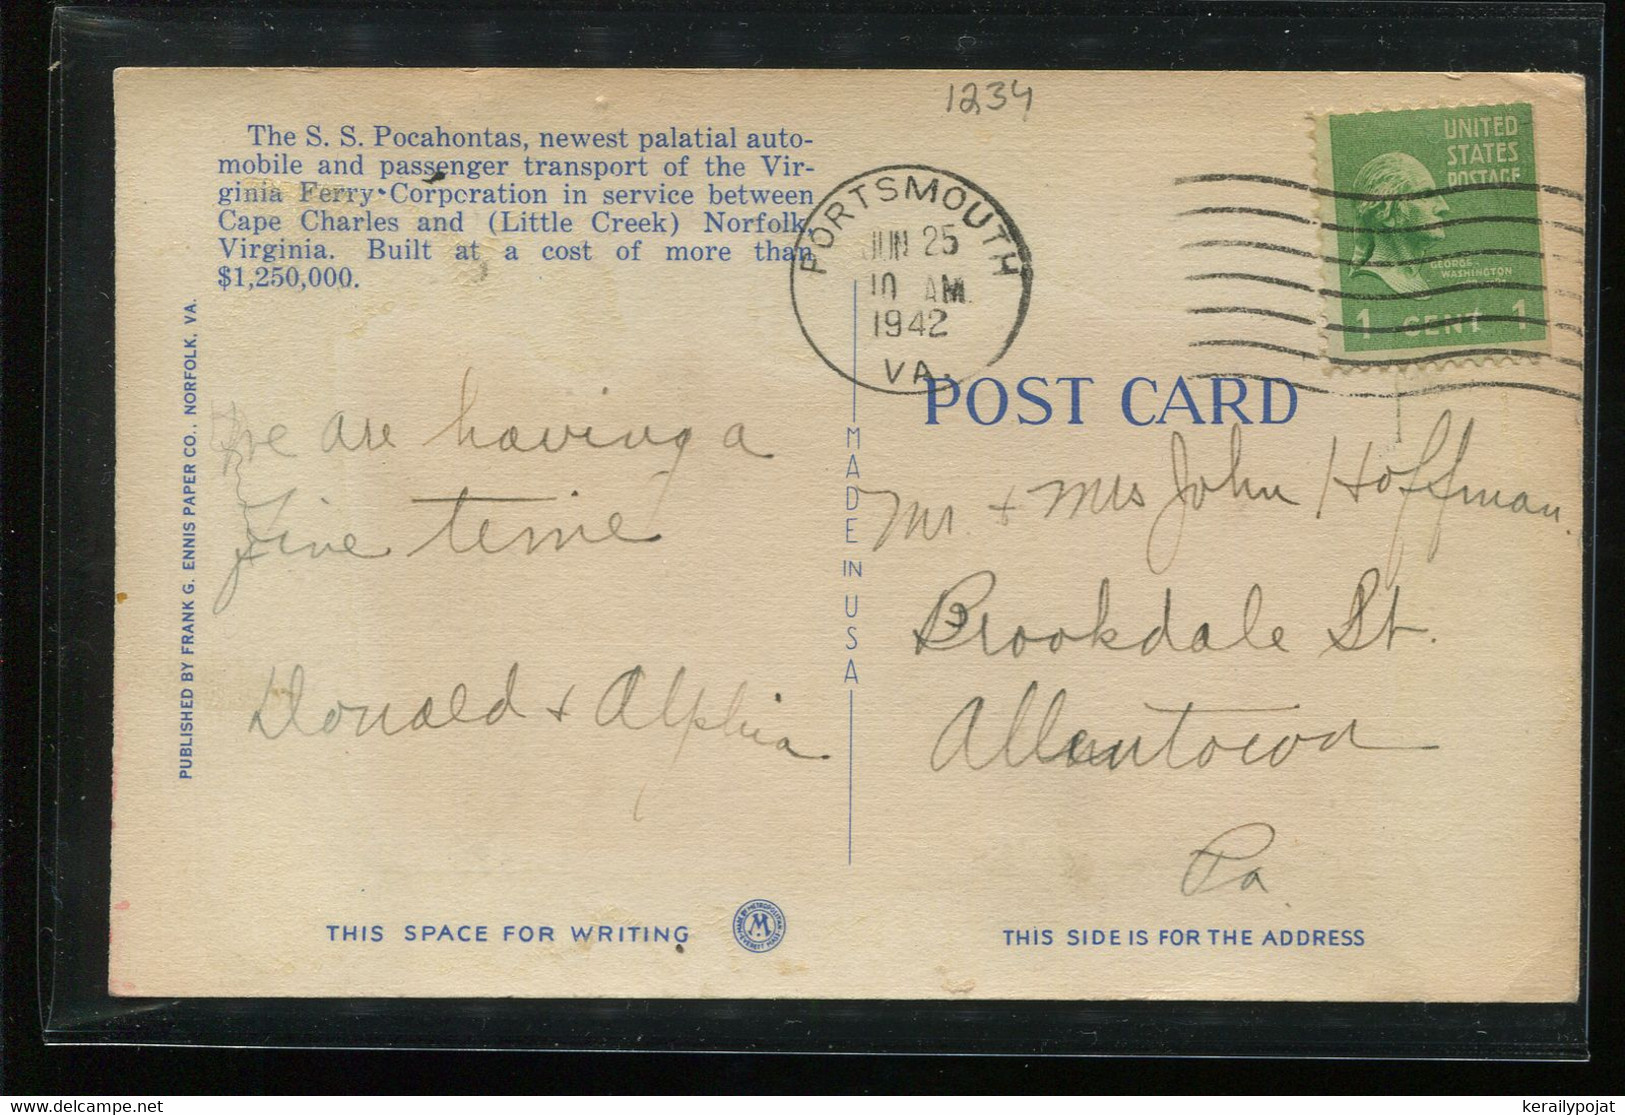 1234
The S. S. Pocahontas, newest palatial auto-
mobile and passenger transport of the Vir-
ginia Ferry Corporation in service between
Cape Charles and (Little Creek) Norfolk,
Virginia. Built at a cost of more than
$1,250,000.
PORTSMOUTH
JUN 25
10 AM
1942
VA.
UNITED
STATES
POSTAGE
GEORGE
WASHINGTON
1 CENT 1
PUBLISHED BY FRANK G. ENNIS PAPER CO., NORFOLK, VA.
We are having a
fine time
Donald + Alphia
MADE IN USA
POST CARD
Mr. + Mrs John Hoffman.
Brookdale St.
Allentown
Pa
THIS SPACE FOR WRITING
MADE BY METROPOLITAN
M
EVERETT MASS
THIS SIDE IS FOR THE ADDRESS
www.delcampe.net
kerailypojat